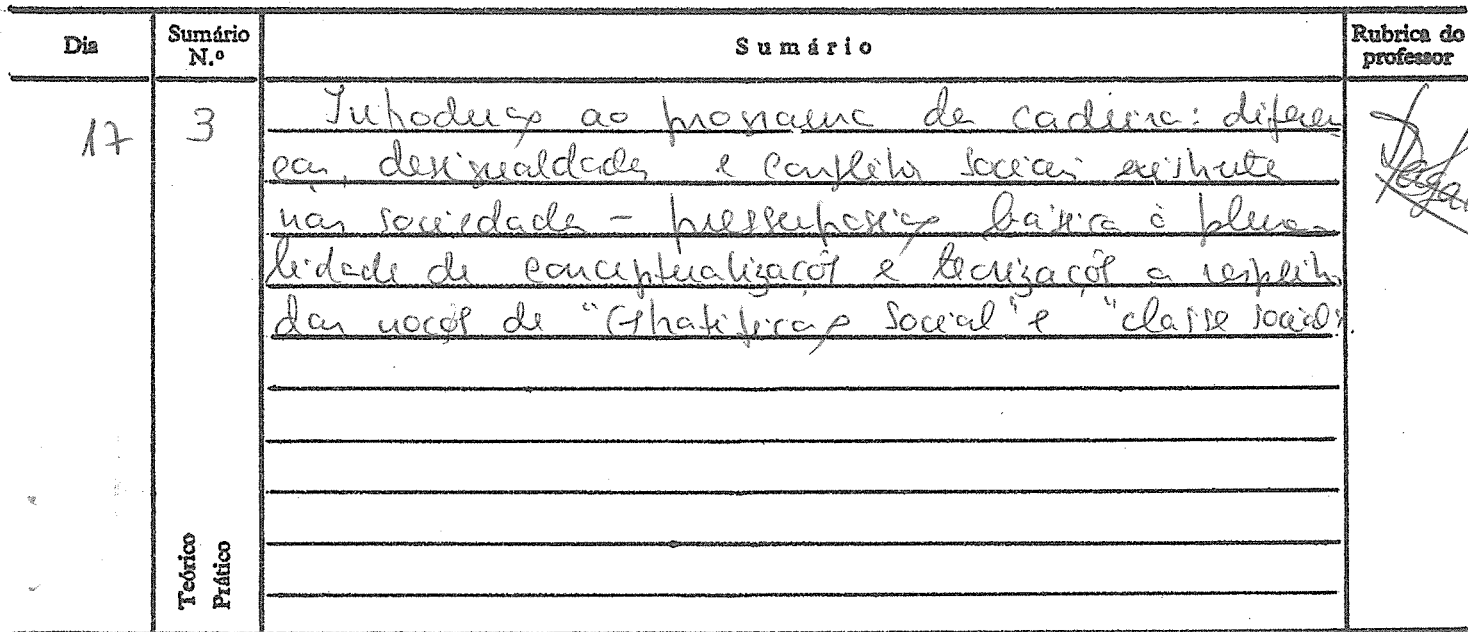 Dia
Sumário N.º
Sumário
Rubrica do professor
17
3
Introdução ao programa da cadeira: diferen
ças, desigualdades e conflitos sociais existentes
nas sociedades – pressuposição básica à plura
lidade de conceptualizações e teorizações a respeito
das noções de "Estratificação Social" e "classe social".
Teórico
Prático